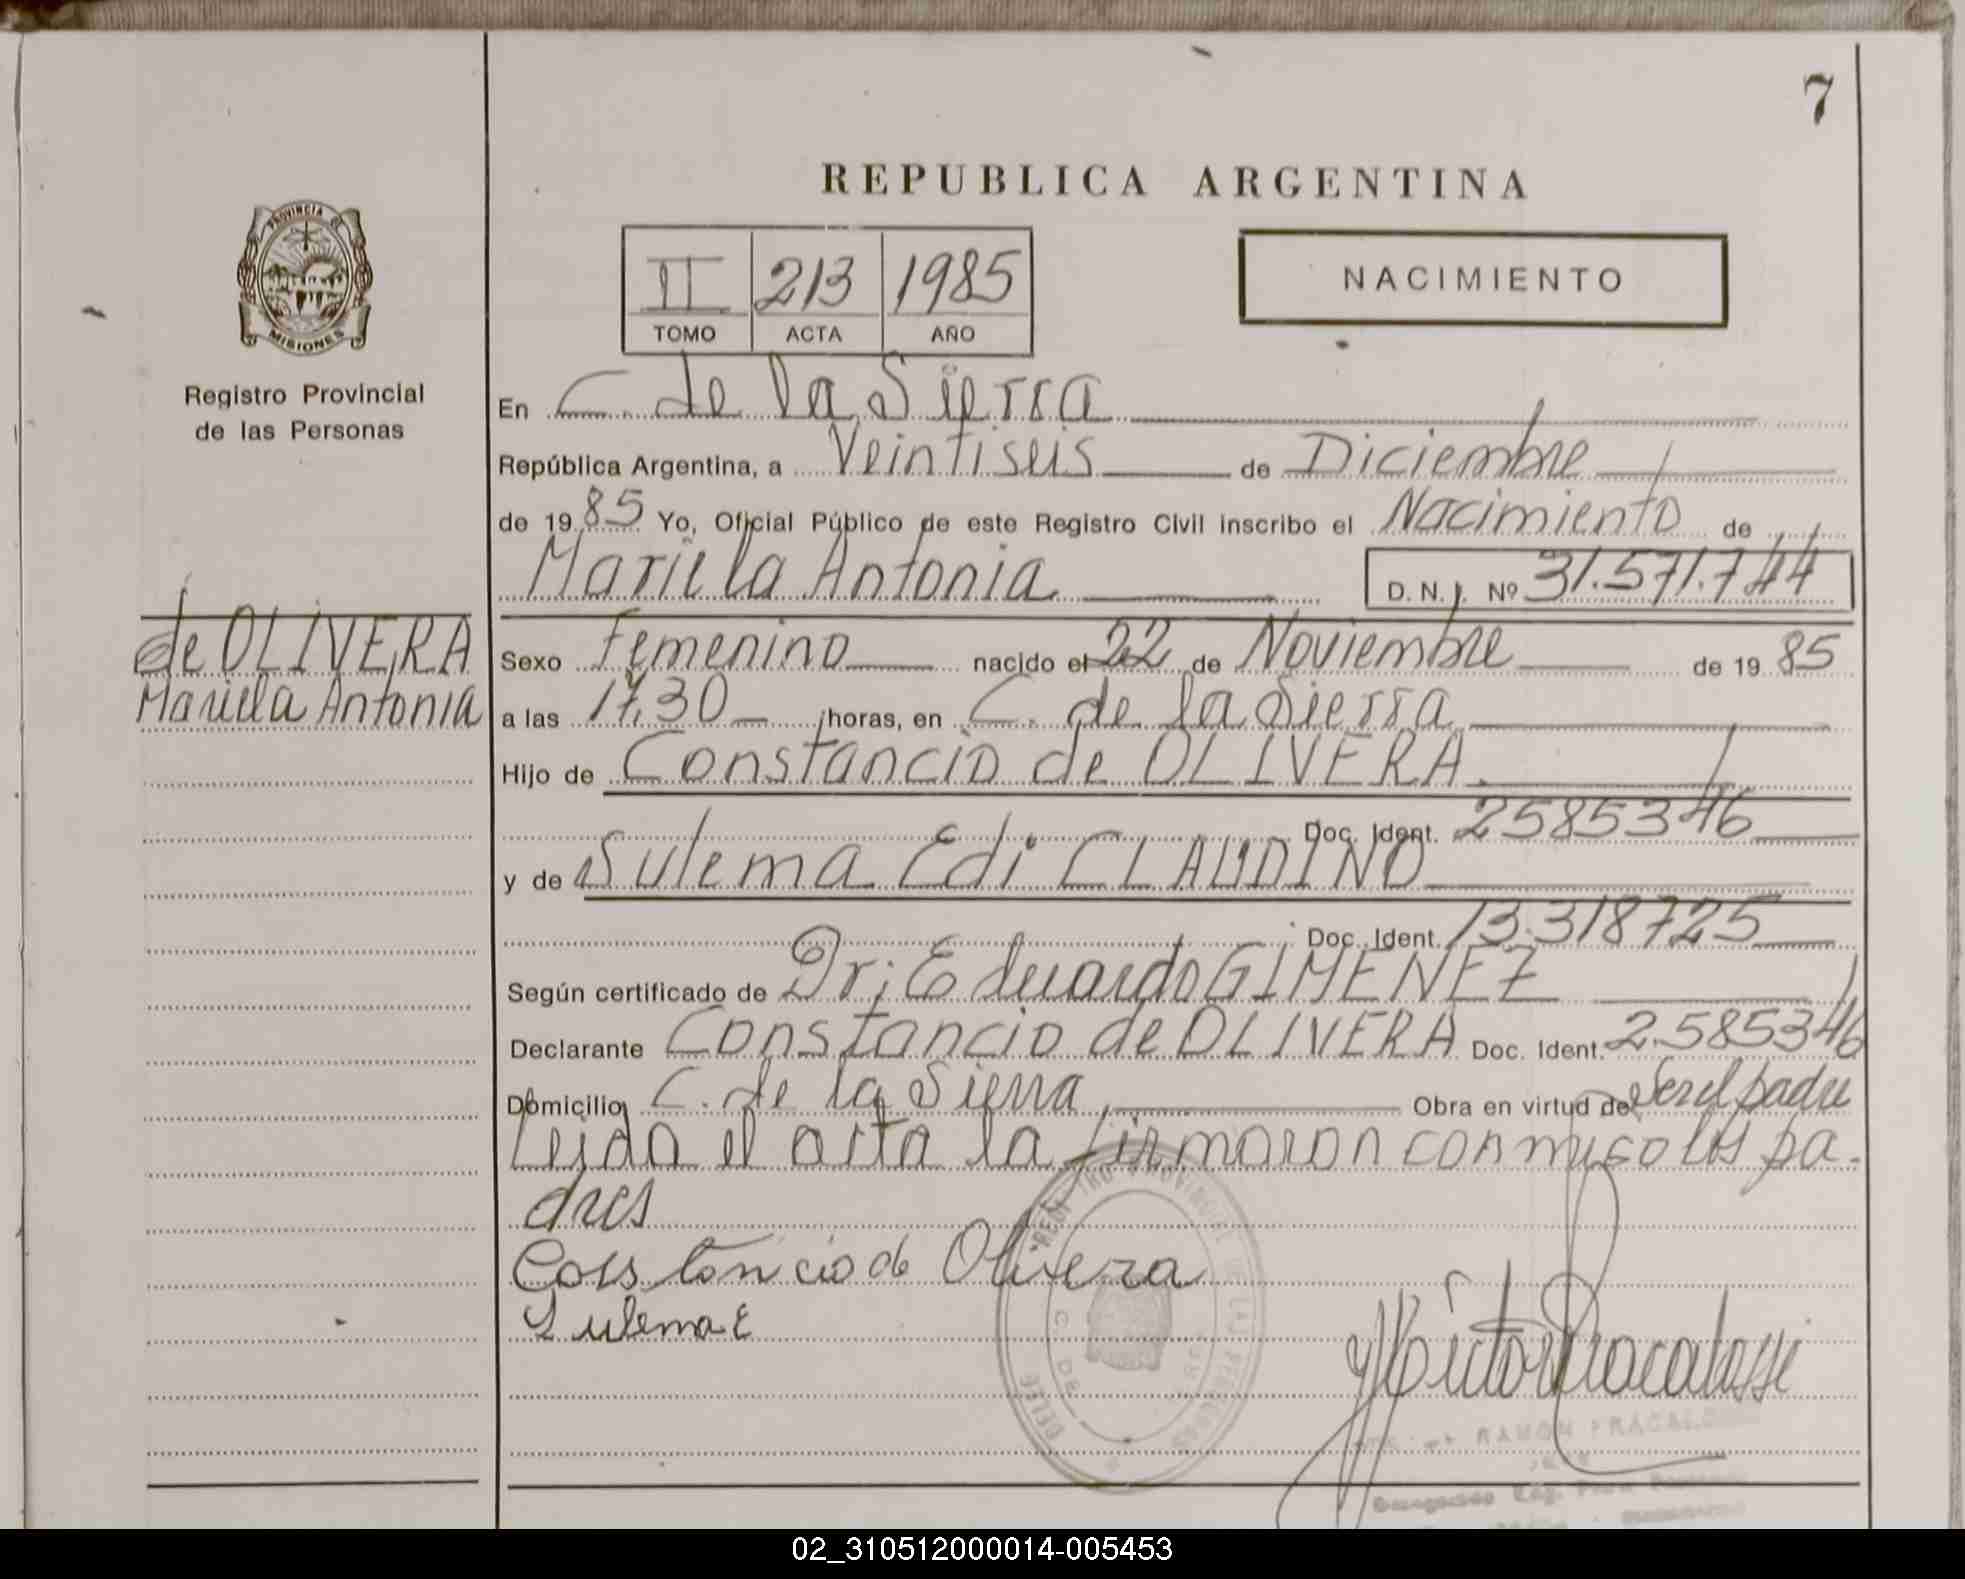 7
REPUBLICA ARGENTINA
PROVINCIA DE
MISIONES
Registro Provincial
de las Personas
II 213 1985
TOMO ACTA AÑO
NACIMIENTO
En C. de la Sierra
República Argentina, a Veintiseis de Diciembre
de 1985 Yo, Oficial Público de este Registro Civil inscribo el Nacimiento de
Mariela Antonia D. N. I. Nº 31.571.744
de OLIVERA
Mariela Antonia
Sexo Femenino nacido el 22 de Noviembre de 1985
a las 17,30 horas, en C. de la Sierra
Hijo de Constancio de OLIVERA
Doc. Ident. 2585346
y de Sulema Edi CLAUDINO
Doc. Ident. 13.318725
Según certificado de Dr; Eduardo GIMENEZ
Declarante Constancio de OLIVERA Doc. Ident. 2.585346
Domicilio C. de la Sierra, Obra en virtud de Ser el padre
Leida el acta la firmaron conmigo los pa-
dres
Constancio de Olivera
Sulema E
RAMON FRACALO
02_310512000014-005453